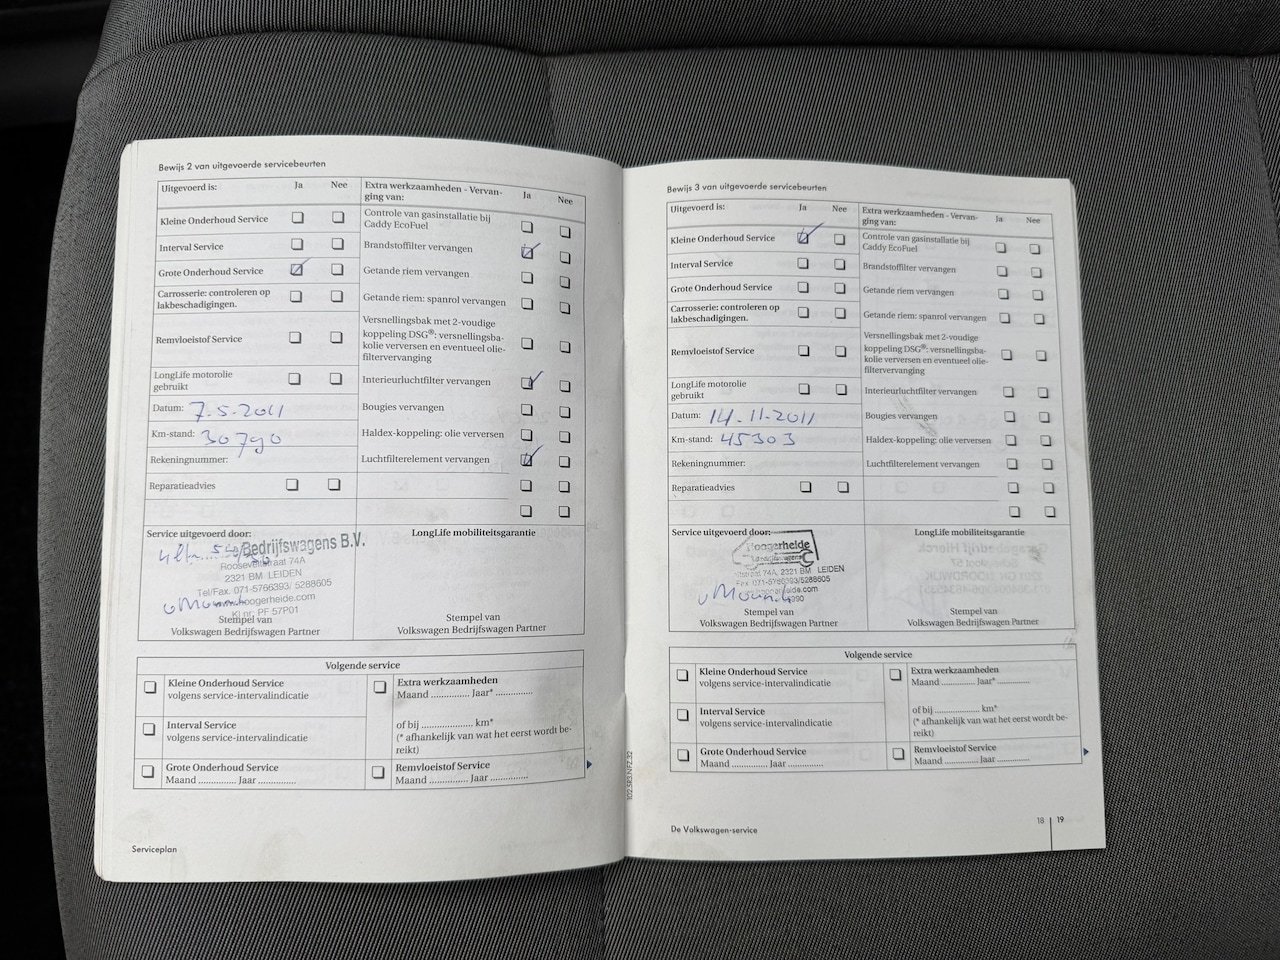 Bewijs 2 van uitgevoerde servicebeurten
Uitgevoerd is: Ja Nee
Kleine Onderhoud Service
Interval Service
Grote Onderhoud Service
Carrosserie: controleren op
lakbeschadigingen.
Remvloeistof Service
LongLife motorolie
gebruikt
Datum: 7.5.2011
Km-stand: 30790
Rekeningnummer:
Reparatieadvies
Extra werkzaamheden - Vervan-
ging van: Ja Nee
Controle van gasinstallatie bij
Caddy EcoFuel
Brandstoffilter vervangen
Getande riem vervangen
Getande riem: spanrol vervangen
Versnellingsbak met 2-voudige
koppeling DSG®: versnellingsba-
kolie verversen en eventueel olie-
filtervervanging
Interieurluchtfilter vervangen
Bougies vervangen
Haldex-koppeling: olie verversen
Luchtfilterelement vervangen
Service uitgevoerd door:
Bedrijfswagens B.V.
Rooseveltstraat 74A
2321 BM LEIDEN
Tel/Fax. 071-5766393/5288605
hoogerheide.com
Kl.nr. PF 57P01
Stempel van
Volkswagen Bedrijfswagen Partner
LongLife mobiliteitsgarantie
Stempel van
Volkswagen Bedrijfswagen Partner
Volgende service
Kleine Onderhoud Service
volgens service-intervalindicatie
Interval Service
volgens service-intervalindicatie
Grote Onderhoud Service
Maand ............. Jaar .............
Extra werkzaamheden
Maand ............... Jaar* ..............
of bij .................... km*
(* afhankelijk van wat het eerst wordt be-
reikt)
Remvloeistof Service
Maand ............... Jaar ..............
Serviceplan
102.5R3.NFZ.32
Bewijs 3 van uitgevoerde servicebeurten
Uitgevoerd is: Ja Nee
Kleine Onderhoud Service
Interval Service
Grote Onderhoud Service
Carrosserie: controleren op
lakbeschadigingen.
Remvloeistof Service
LongLife motorolie
gebruikt
Datum: 14.11.2011
Km-stand: 45303
Rekeningnummer:
Reparatieadvies
Extra werkzaamheden - Vervan-
ging van: Ja Nee
Controle van gasinstallatie bij
Caddy EcoFuel
Brandstoffilter vervangen
Getande riem vervangen
Getande riem: spanrol vervangen
Versnellingsbak met 2-voudige
koppeling DSG®: versnellingsba-
kolie verversen en eventueel olie-
filtervervanging
Interieurluchtfilter vervangen
Bougies vervangen
Haldex-koppeling: olie verversen
Luchtfilterelement vervangen
Service uitgevoerd door:
Hoogerheide
Bedrijfswagens
74A, 2321 BM LEIDEN
Fax 071-5766393/5288605
Stempel van
Volkswagen Bedrijfswagen Partner
LongLife mobiliteitsgarantie
Stempel van
Volkswagen Bedrijfswagen Partner
Volgende service
Kleine Onderhoud Service
volgens service-intervalindicatie
Interval Service
volgens service-intervalindicatie
Grote Onderhoud Service
Maand ............. Jaar .............
Extra werkzaamheden
Maand ............. Jaar* .............
of bij .................... km*
(* afhankelijk van wat het eerst wordt be-
reikt)
Remvloeistof Service
Maand ............. Jaar .............
De Volkswagen-service
18 | 19